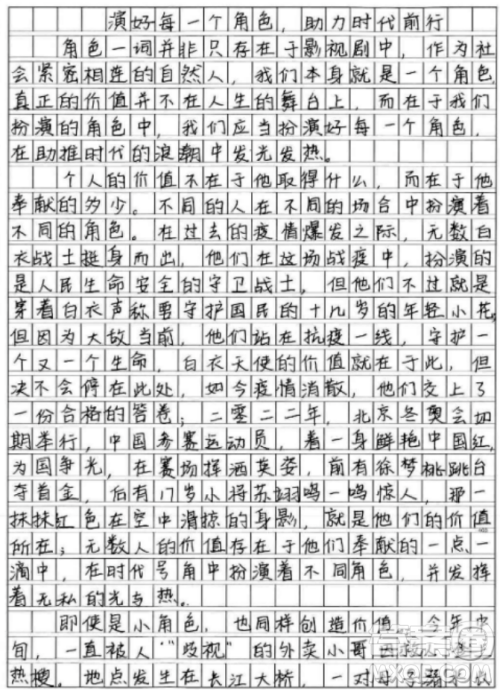 演好每一个角色，助力时代前行
角色一词并非只存在于影视剧中，作为社
会紧密相连的自然人，我们本身就是一个角色
真正的价值并不在人生的舞台上，而在于我们
扮演的角色中，我们应当扮演好每一个角色，
在助推时代的浪潮中发光发热。
个人的价值不在于他取得什么，而在于他
奉献的多少。不同的人在不同的场合中扮演着
不同的角色。在过去的疫情爆发之际，无数白
衣战士挺身而出，他们在这场战疫中，扮演的
是人民生命安全的守卫战士，但他们不过就是
穿着白衣声称要守护国民的十几岁的年轻小花。
但因为大敌当前，他们站在抗疫一线，守护一
个又一个生命，白衣天使的价值就在于此，但
决不会停在此处，如今疫情消散，他们交上了
一份合格的答卷；二零二二年，北京冬奥会如
期举行，中国参赛运动员，着一身鲜艳中国红，
为国争光，在赛场挥洒英姿，前有徐梦桃跳台
夺首金，后有17岁小将苏翊鸣一鸣惊人，那一
抹抹红色在空中滑掠的身影，就是他们的价值
所在；无数人的价值存在于他们奉献的一点一
滴中，在时代号角中扮演着不同角色，并发挥
着无私的光与热。
即使是小角色，也同样创造价值，今年中
旬，一直被人“歧视”的外卖小哥
热搜。地点发生在长江大桥，一对